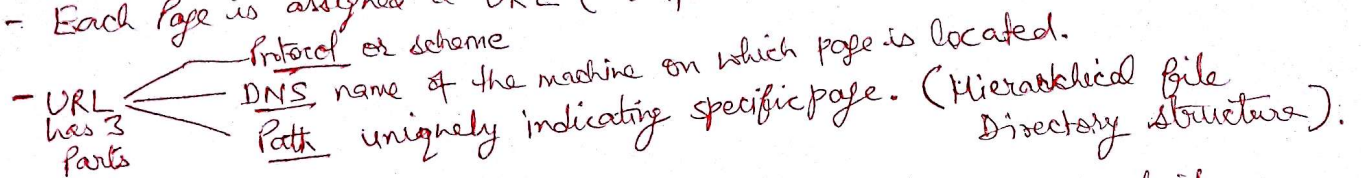 - Each Page is assigned a URL (
Protocol or scheme
- URL has 3 Parts
DNS name of the machine on which page is located.
Path uniquely indicating specific page. (Hierarchical file Directory structure).